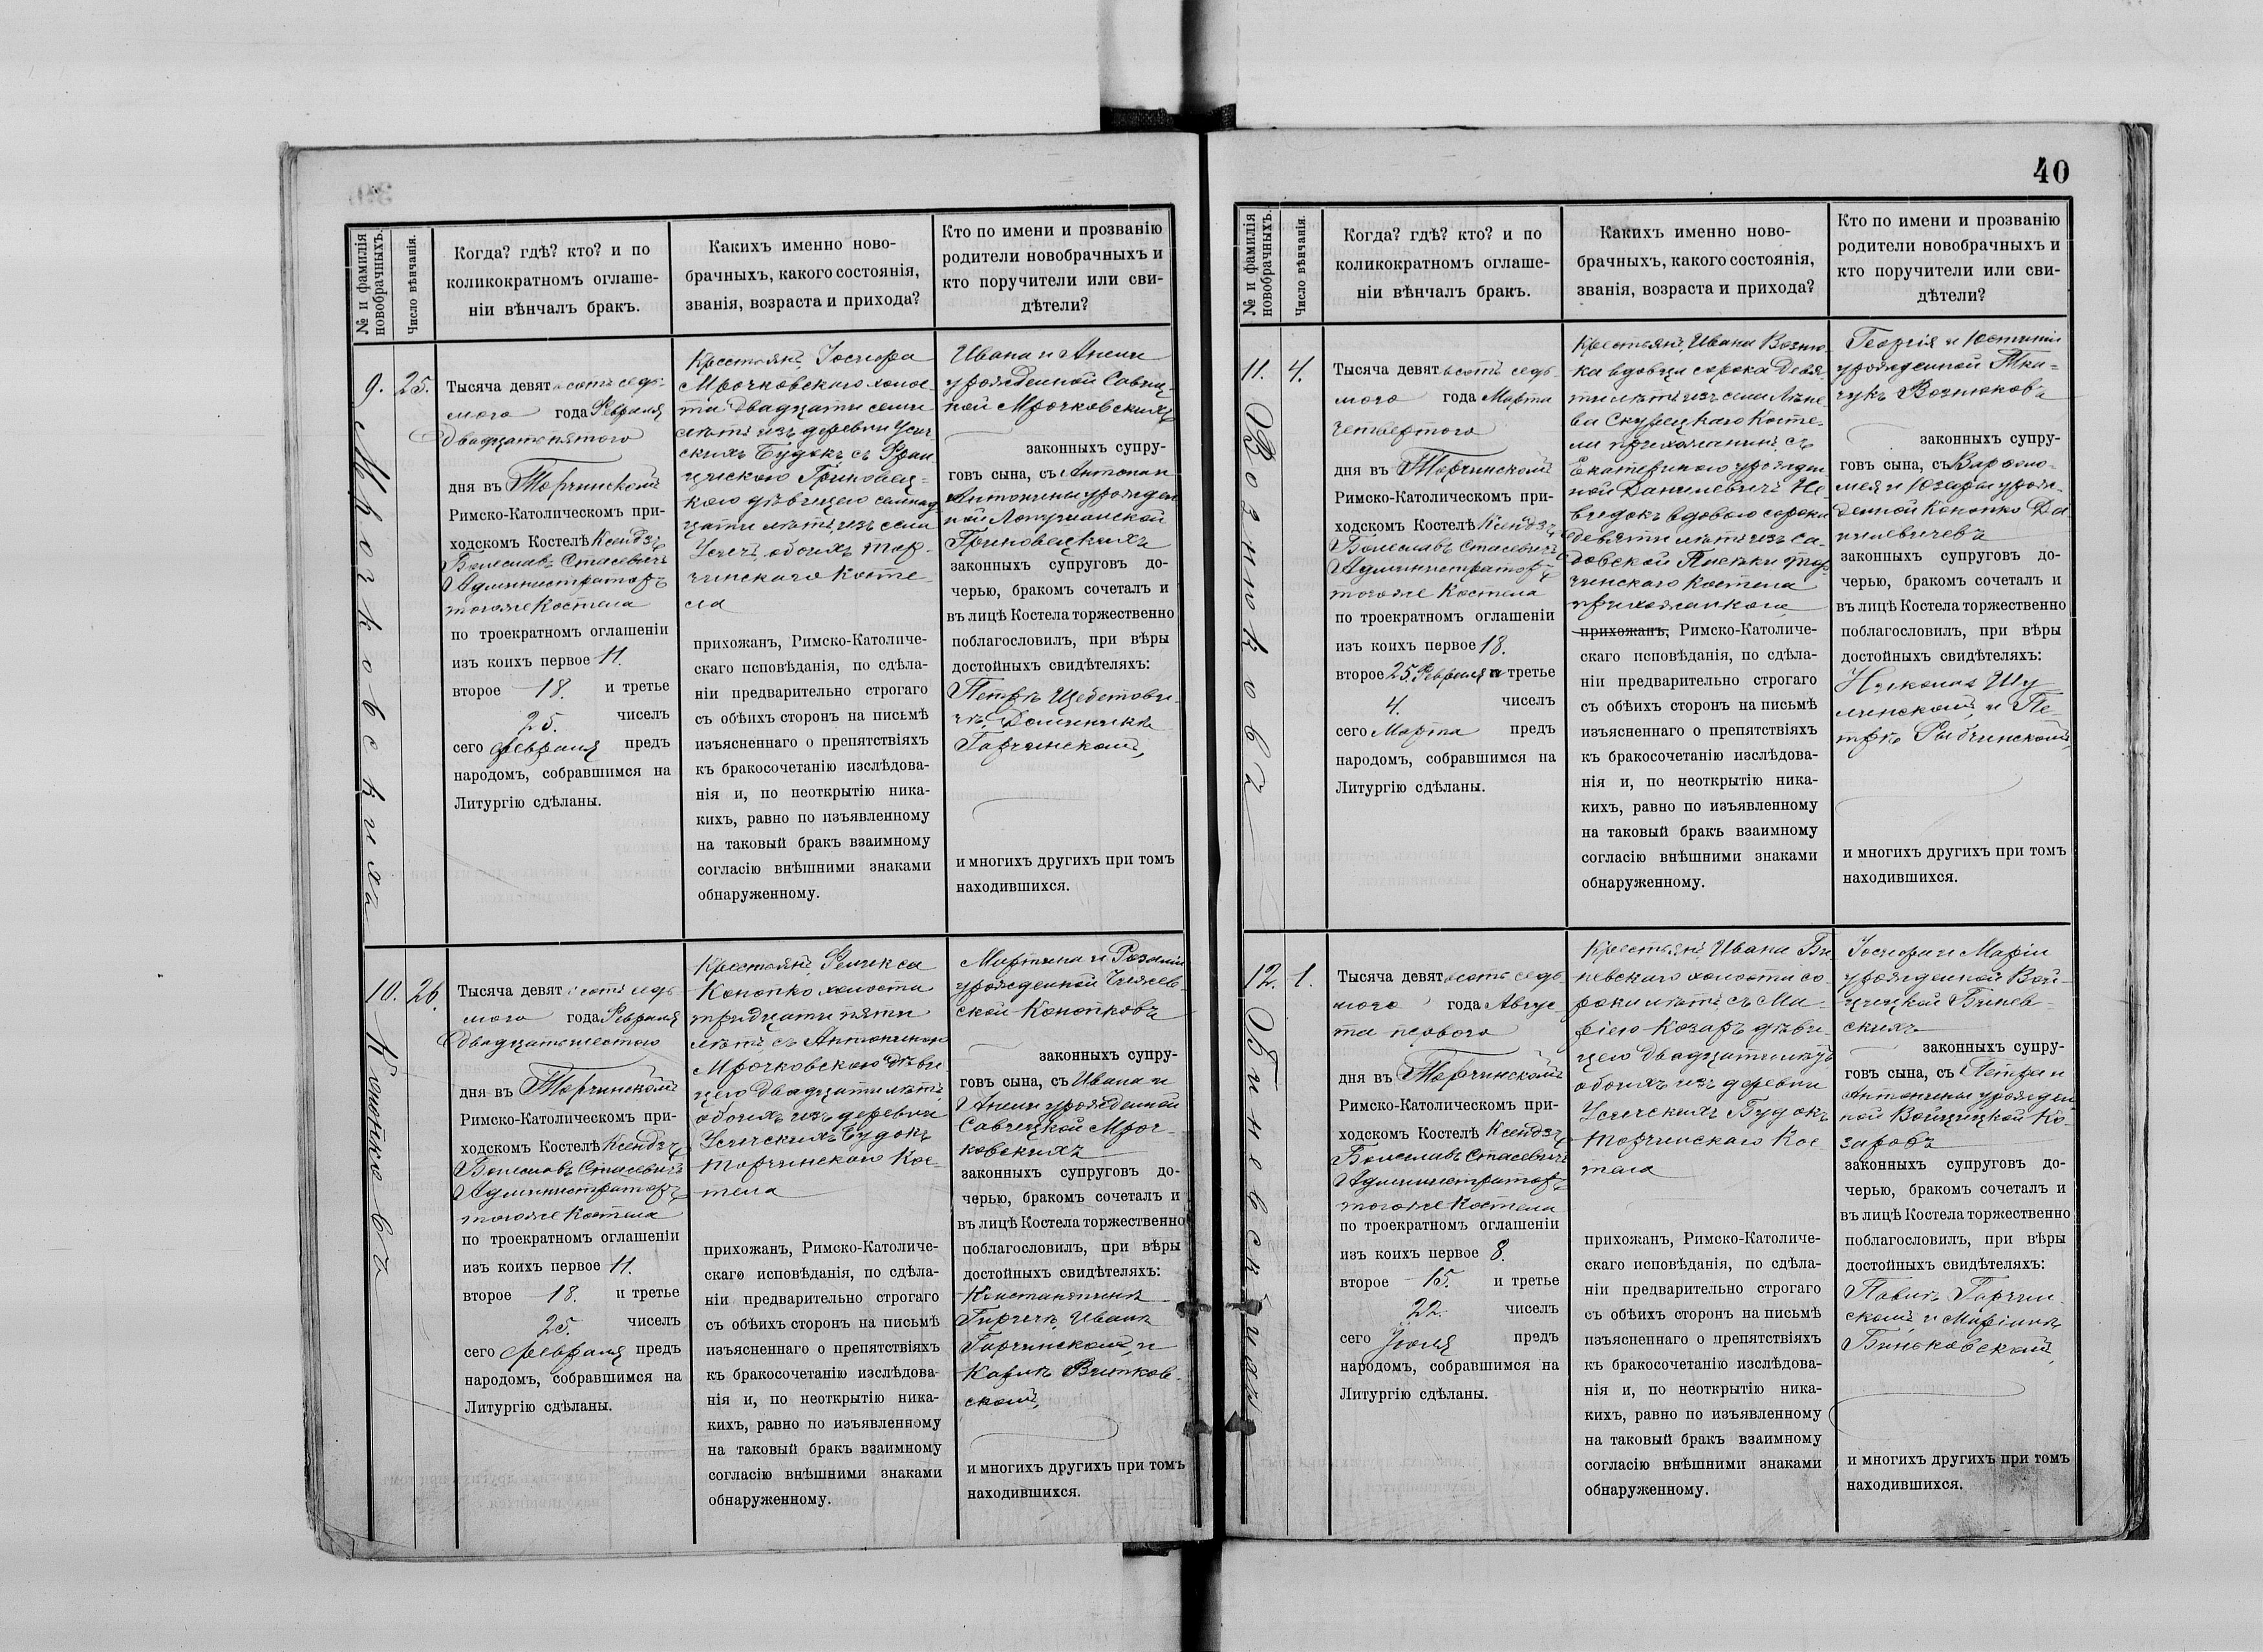 40
№ и фамилія новобрачныхъ.
Число вѣнчанія.
Когда? гдѣ? кто? и по
коликократномъ оглаше-
ніи вѣнчалъ бракъ.
Какихъ именно ново-
брачныхъ, какого состоянія,
званія, возраста и прихода?
Кто по имени и прозванію
родители новобрачныхъ и
кто поручители или сви-
дѣтели?
9.
Мрочковскихъ
25.
Тысяча девятьсотъ седь-
мого года Февраля
двадцатьпятого
дня въ Торчинскомъ
Римско-Католическомъ при-
ходскомъ Костелѣ Ксендзъ
Болеславъ Стасевичъ
Администраторъ
тогоже Костела
по троекратномъ оглашеніи
изъ коихъ первое 11.
второе 18. и третье
25. чиселъ
сего Февраля предъ
народомъ, собравшимся на
Литургію сдѣланы.
Крестьянъ, Іосифа
Мрочковскаго холос-
та двадцати семи
лѣтъ изъ деревни Усич-
скихъ Будокъ съ Фран-
цишкою Гриновец-
кою дѣвицею семнад-
цати лѣтъ, изъ села
Усичъ, обоихъ Тор-
чинскаго Косте-
ла
прихожанъ, Римско-Католиче-
скаго исповѣданія, по сдѣла-
ніи предварительно строгаго
съ обѣихъ сторонъ на письмѣ
изъясненнаго о препятствіяхъ
къ бракосочетанію изслѣдова-
нія и, по неоткрытію ника-
кихъ, равно по изъявленному
на таковый бракъ взаимному
согласію внѣшними знаками
обнаруженному.
Ивана и Анели
урожденной Савиц-
кой Мрочковскихъ
законныхъ супру-
говъ сына, съ Антона и
Антонины урожден-
ной
Гриновецкихъ
законныхъ супруговъ до-
черью, бракомъ сочеталъ и
въ лицѣ Костела торжественно
поблагословилъ, при вѣры
достойныхъ свидѣтеляхъ:
Петръ
Доминикъ
Гарчинскомъ,
и многихъ другихъ при томъ
находившихся.
10.
Конопковъ
26.
Тысяча девятьсотъ седь-
мого года Февраля
двадцатьшестого
дня въ Торчинскомъ
Римско-Католическомъ при-
ходскомъ Костелѣ Ксендзъ
Болеславъ Стасевичъ
Администраторъ
тогоже Костела
по троекратномъ оглашеніи
изъ коихъ первое 11.
второе 18. и третье
25. чиселъ
сего Февраля предъ
народомъ, собравшимся на
Литургію сдѣланы.
Крестьянъ, Феликса
Конопко холоста
тридцати пяти
лѣтъ съ Антониною
Мрочковскою дѣви-
цею двадцати лѣтъ,
обоихъ изъ деревни
Усичскихъ Будокъ
Торчинскаго Кос-
тела
прихожанъ, Римско-Католиче-
скаго исповѣданія, по сдѣла-
ніи предварительно строгаго
съ обѣихъ сторонъ на письмѣ
изъясненнаго о препятствіяхъ
къ бракосочетанію изслѣдова-
нія и, по неоткрытію ника-
кихъ, равно по изъявленному
на таковый бракъ взаимному
согласію внѣшними знаками
обнаруженному.
Мартина и Розаліи
урожденной
Конопковъ
законныхъ супру-
говъ сына, съ Ивана и
Анели урожденной
Савицкой Мроч-
ковскихъ
законныхъ супруговъ до-
черью, бракомъ сочеталъ и
въ лицѣ Костела торжественно
поблагословилъ, при вѣры
достойныхъ свидѣтеляхъ:
Константинъ
Иванъ
Гарчинскомъ, и
Карлъ Витков-
скомъ,
и многихъ другихъ при томъ
находившихся.
№ и фамилія новобрачныхъ.
Число вѣнчанія.
Когда? гдѣ? кто? и по
коликократномъ оглаше-
ніи вѣнчалъ бракъ.
Какихъ именно ново-
брачныхъ, какого состоянія,
званія, возраста и прихода?
Кто по имени и прозванію
родители новобрачныхъ и
кто поручители или сви-
дѣтели?
11.
Вознюковъ
4.
Тысяча девятьсотъ седь-
мого года Марта
четвертого
дня въ Торчинскомъ
Римско-Католическомъ при-
ходскомъ Костелѣ Ксендзъ
Болеславъ Стасевичъ
Администраторъ
тогоже Костела
по троекратномъ оглашеніи
изъ коихъ первое 18.
второе 25. Февраля и третье
4. чиселъ
сего Марта предъ
народомъ, собравшимся на
Литургію сдѣланы.
Крестьянъ, Ивана Возню-
ка вдовца сорока девя-
ти лѣтъ изъ села
Скурецкаго Косте-
ла прихожанинъ, съ
Екатериною урожден-
ной Данилевичъ Не-
вядокъ вдовою сорока
девяти лѣтъ изъ Са-
довской Тор-
чинскаго Костела
прихожанкою,
прихожанъ, Римско-Католиче-
скаго исповѣданія, по сдѣла-
ніи предварительно строгаго
съ обѣихъ сторонъ на письмѣ
изъясненнаго о препятствіяхъ
къ бракосочетанію изслѣдова-
нія и, по неоткрытію ника-
кихъ, равно по изъявленному
на таковый бракъ взаимному
согласію внѣшними знаками
обнаруженному.
Георгія и Юстиніи
урожденной Тка-
чукъ Вознюковъ
законныхъ супру-
говъ сына, съ Варфоло-
мея и Юзефы урож-
денной Конопко Да-
нилевичевъ
законныхъ супруговъ до-
черью, бракомъ сочеталъ и
въ лицѣ Костела торжественно
поблагословилъ, при вѣры
достойныхъ свидѣтеляхъ:
Николая Шу-
линскомъ, и Пе-
тръ Рыбчинскомъ,
и многихъ другихъ при томъ
находившихся.
12.
Биневскихъ
1.
Тысяча девятьсотъ седь-
мого года Авгус-
та первого
дня въ Торчинскомъ
Римско-Католическомъ при-
ходскомъ Костелѣ Ксендзъ
Болеславъ Стасевичъ
Администраторъ
тогоже Костела
по троекратномъ оглашеніи
изъ коихъ первое 8.
второе 15. и третье
22. чиселъ
сего Іюля предъ
народомъ, собравшимся на
Литургію сдѣланы.
Крестьянъ, Ивана Би-
невскаго холоста со-
рока лѣтъ, съ Ма-
ріею Козаръ дѣви-
цею двадцати лѣтъ
обоихъ изъ деревни
Усичскихъ Будокъ
Торчинскаго Кос-
тела
прихожанъ, Римско-Католиче-
скаго исповѣданія, по сдѣла-
ніи предварительно строгаго
съ обѣихъ сторонъ на письмѣ
изъясненнаго о препятствіяхъ
къ бракосочетанію изслѣдова-
нія и, по неоткрытію ника-
кихъ, равно по изъявленному
на таковый бракъ взаимному
согласію внѣшними знаками
обнаруженному.
Іосифа и Маріи
урожденной Вой-
цицкой Бинев-
скихъ
законныхъ супру-
говъ сына, съ Петра и
Антонины урожден-
ной Войцицкой Ко-
заровъ
законныхъ супруговъ до-
черью, бракомъ сочеталъ и
въ лицѣ Костела торжественно
поблагословилъ, при вѣры
достойныхъ свидѣтеляхъ:
Павлъ Гарчин-
скомъ, и Маріанъ
Биньковскомъ,
и многихъ другихъ при томъ
находившихся.